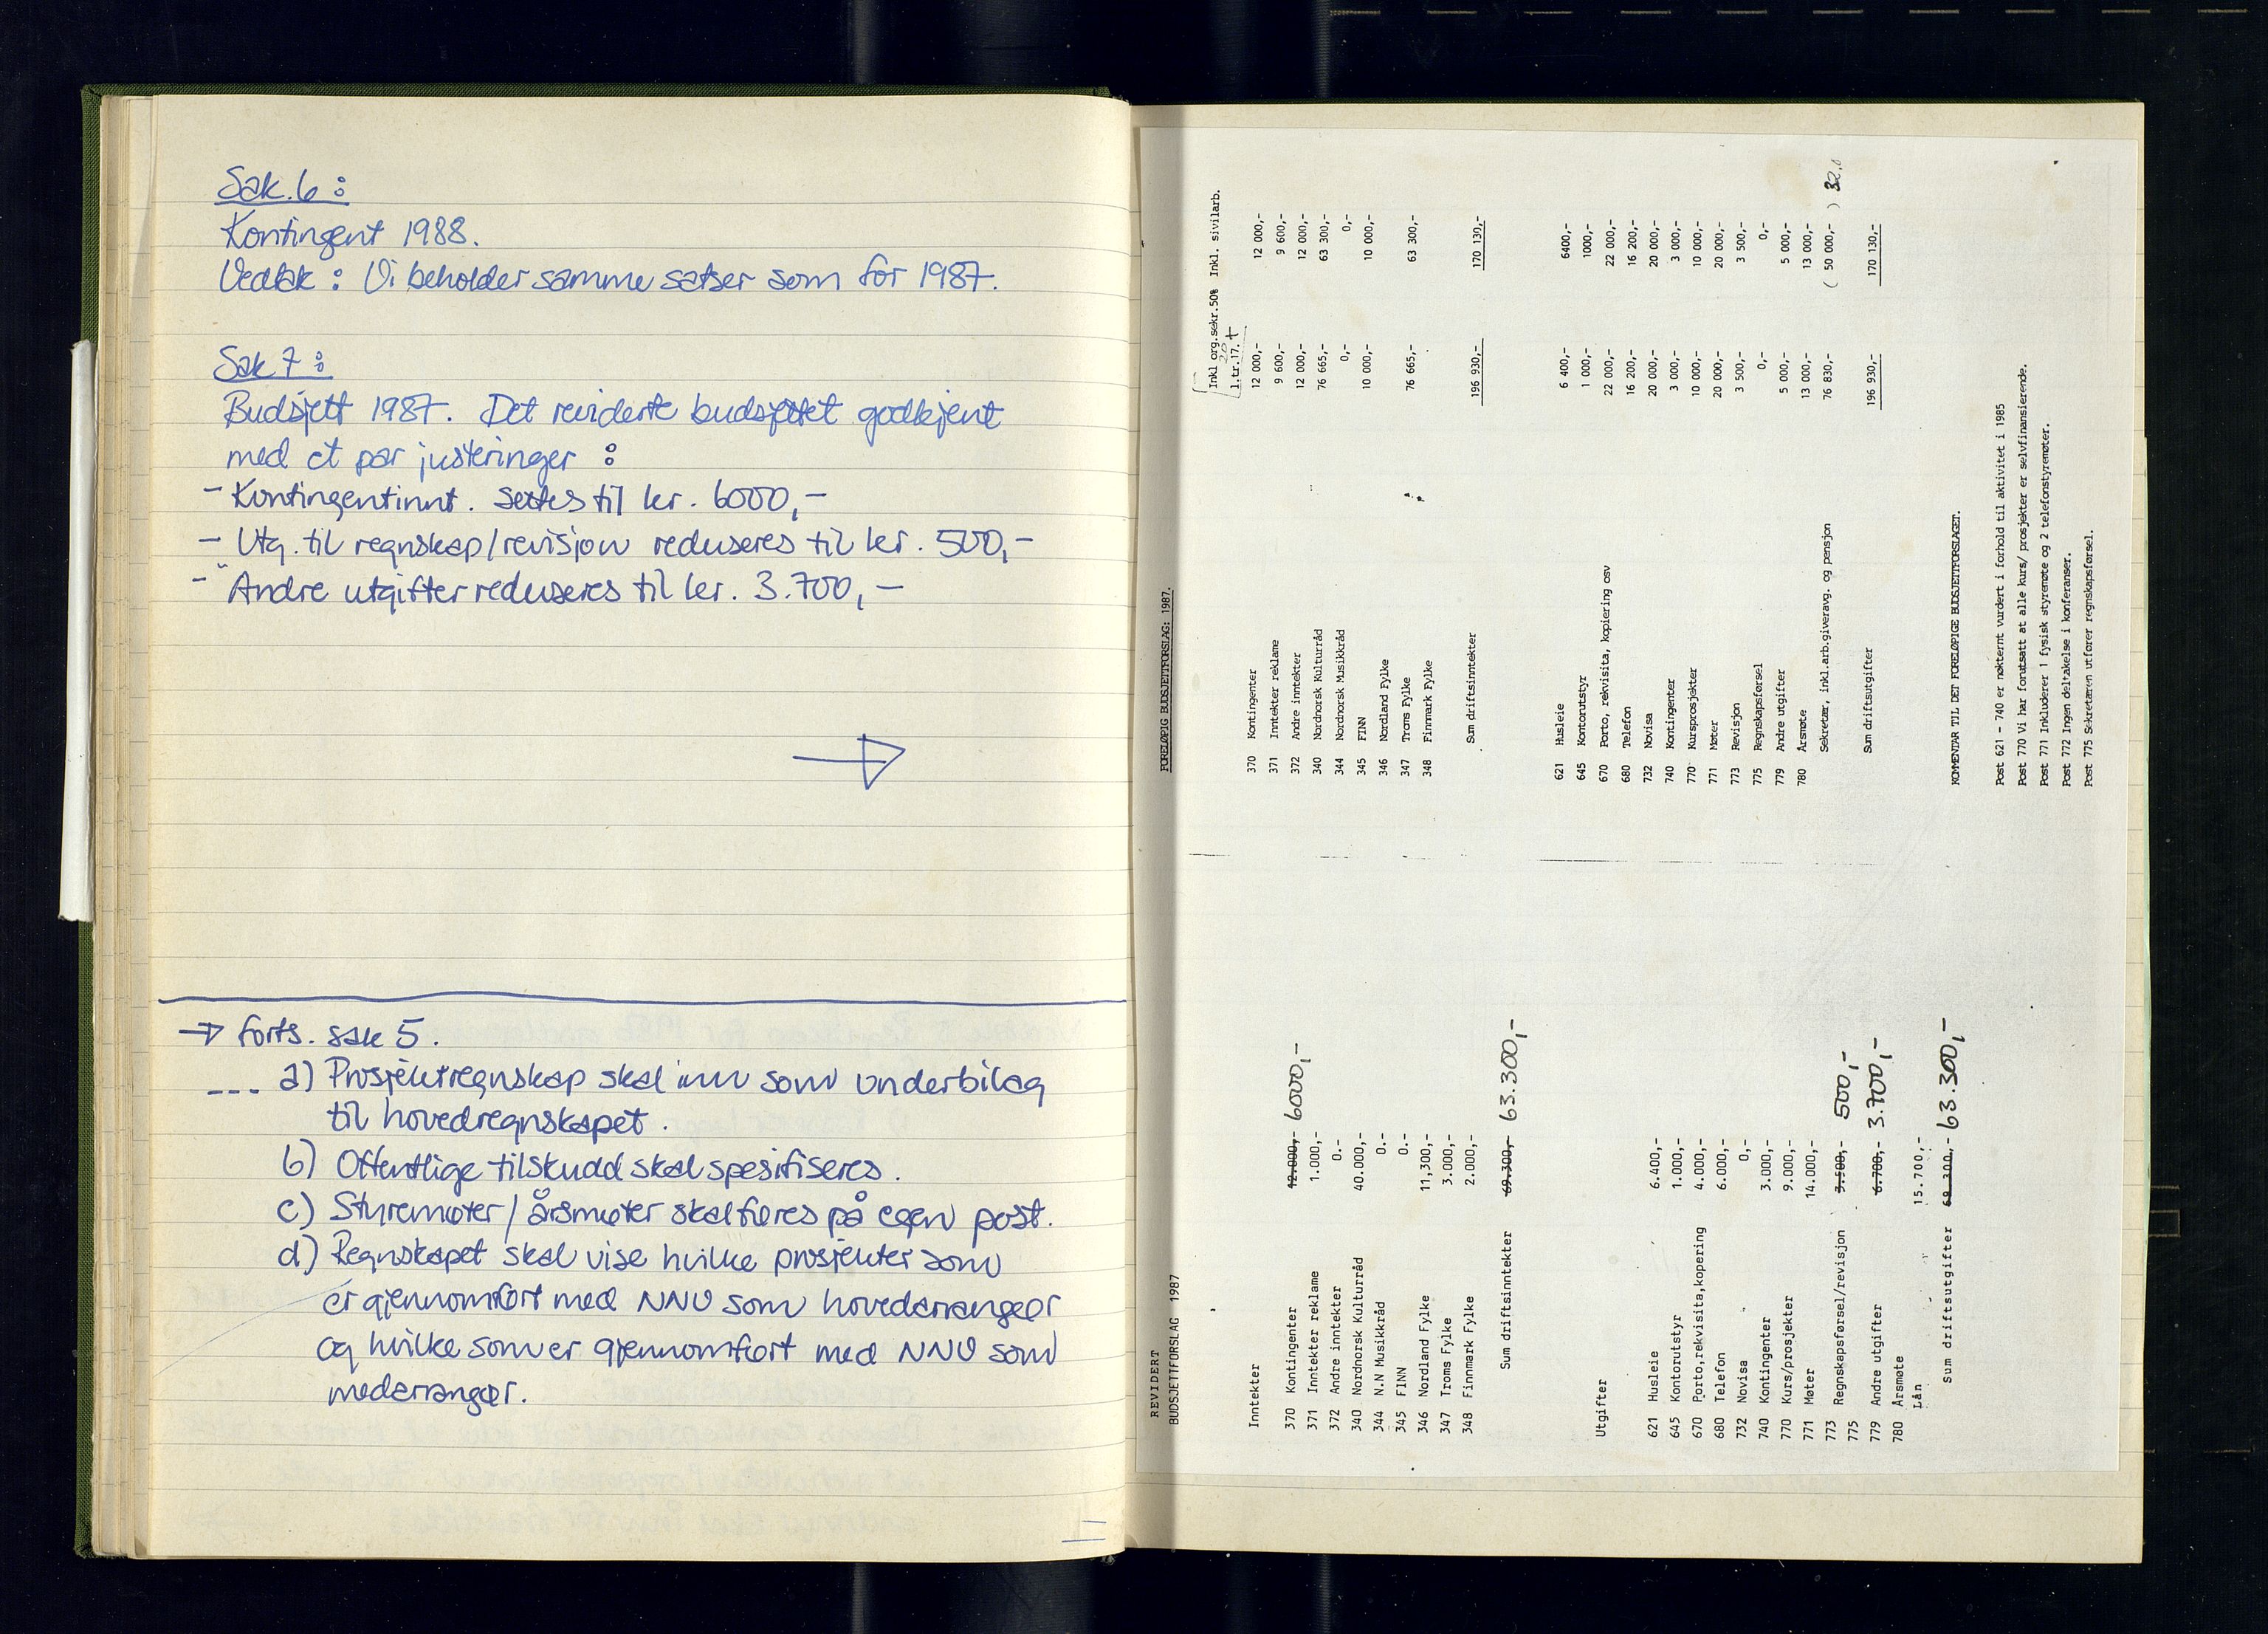 Sak.6:
Kontingent 1988.
Vedtak: Vi beholder samme satser som for 1987.
Sak 7:
Budsjett 1987. Det reviderte budsjettet godkjent
med et par justeringer:
- Kontingentinnt. settes til kr. 6000,-
- Utg. til regnskap/revisjon reduseres til kr. 500,-
- Andre utgifter reduseres til kr. 3.700,-
→ forts. sak 5.
--- a) Prosjektregnskap skal inn som underbilag
til hovedregnskapet.
b) Offentlige tilskudd skal spesifiseres.
c) Styremøter/årsmøter skal føres på egen post.
d) Regnskapet skal vise hvilke prosjekter som
er gjennomført med NNU som hovedarrangør
og hvilke som er gjennomført med NNU som
medarrangør.
REVIDERT
BUDSJETTFORSLAG 1987
Inntekter
370 Kontingenter 12.000,- 6000,-
371 Inntekter reklame 1.000,-
372 Andre inntekter 0.-
340 Nordnorsk Kulturråd 40.000,-
344 N.N Musikkråd 0.-
345 FINN 0.-
346 Nordland Fylke 11,300,-
347 Troms Fylke 3.000,-
348 Finnmark Fylke 2.000,-
Sum driftsinntekter 69.300,- 63.300,-
Utgifter
621 Husleie 6.400,-
645 Kontorutstyr 1.000,-
670 Porto,rekvisita,kopering 4.000,-
680 Telefon 6.000,-
732 Novisa 0,-
740 Kontingenter 3.000,-
770 Kurs/prosjekter 9.000,-
771 Møter 14.000,-
773 Regnskapsførsel/revisjon 3.500,- 500,-
775
779 Andre utgifter 6.700,- 3.700,-
780 Årsmøte
Lån 15.700,-
Sum driftsutgifter 69.300,- 63.300,-
FORELØPIG BUDSJETTFORSLAG: 1987.
Inkl org.sekr.50% Inkl. sivilarb.
l.tr.17.+
370 Kontingenter 12 000,- 12 000,-
371 Inntekter reklame 9 600,- 9 600,-
372 Andre inntekter 12 000,- 12 000,-
340 Nordnorsk Kulturråd 76 665,- 63 300,-
344 Nordnorsk Musikkråd 0,- 0,-
345 FINN 10 000,- 10 000,-
346 Nordland Fylke
347 Troms Fylke 76 665,- 63 300,-
348 Finnmark Fylke
Sum driftsinntekter 196 930,- 170 130,-
621 Husleie 6 400,- 6400,-
645 Kontorutstyr 1 000,- 1000,-
670 Porto, rekvisita, kopiering osv 22 000,- 22 000,-
680 Telefon 16 200,- 16 200,-
732 Novisa 20 000,- 20 000,-
740 Kontingenter 3 000,- 3 000,-
770 Kursprosjekter 10 000,- 10 000,-
771 Møter 20 000,- 20 000,-
773 Revisjon 3 500,- 3 500,-
775 Regnskapsførsel 0,- 0,-
779 Andre utgifter 5 000,- 5 000,-
780 Årsmøte 13 000,- 13 000,-
Sekretær, inkl.arb.giveravg. og pensjon 76 830,- ( 50 000,- ) 32.
Sum driftsutgifter 196 930,- 170 130,-
KOMMENTAR TIL DET FORELØPIGE BUDSJETTFORSLAGET.
Post 621 - 740 er nøkternt vurdert i forhold til aktivitet i 1985
Post 770 Vi har forutsatt at alle kurs/ prosjekter er selvfinansierende.
Post 771 Inkluderer 1 fysisk styremøte og 2 telefonstyremøter.
Post 772 Ingen deltakelse i konferanser.
Post 775 Sekretæren utfører regnskapsførsel.